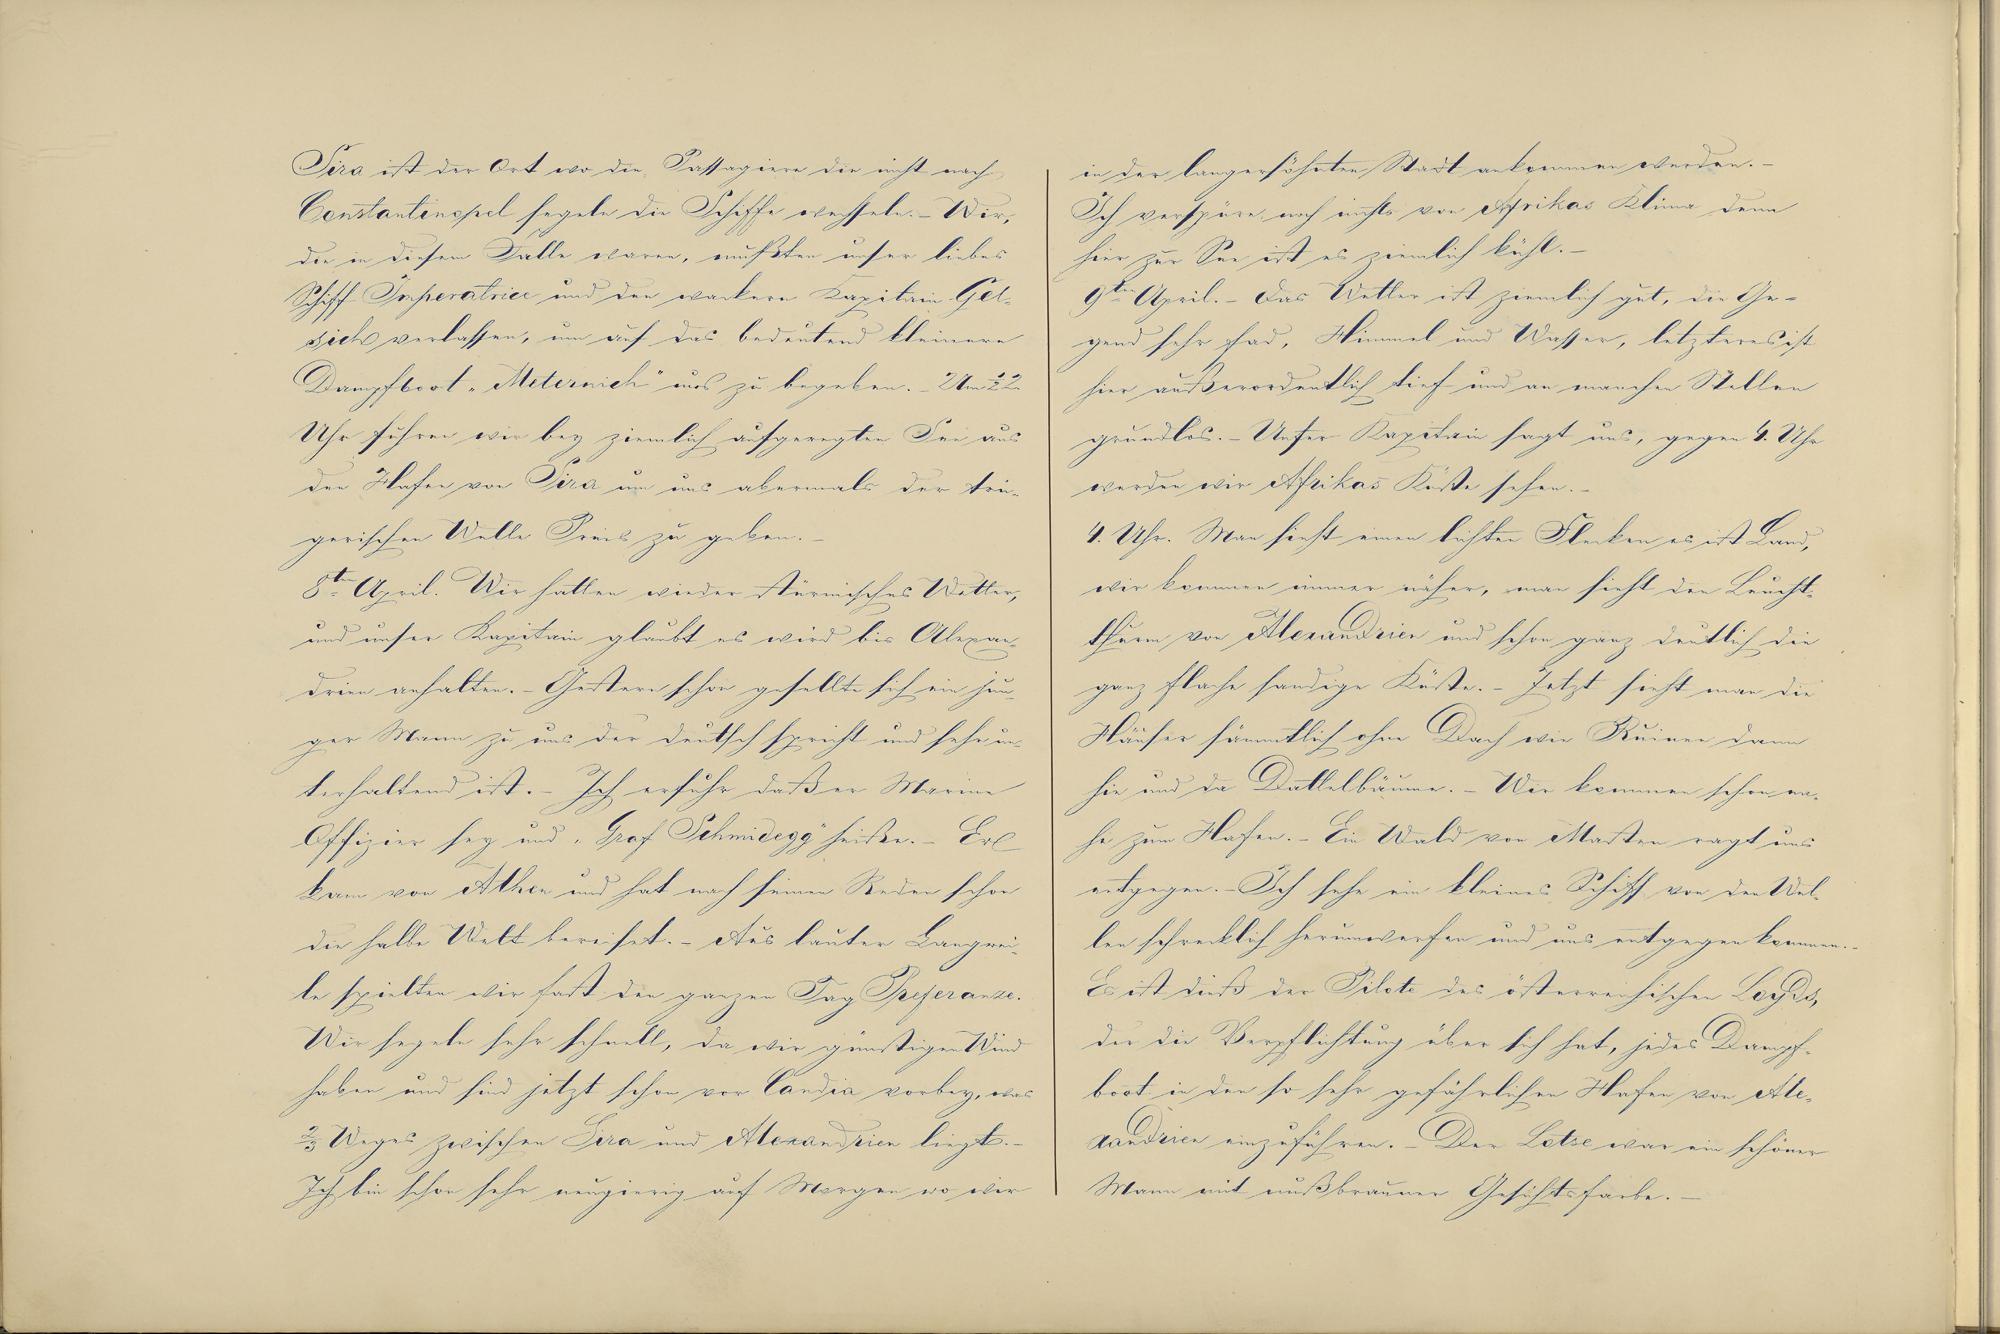 Sira ist der Ort wo die Passagiere die nicht nach
Constantinopel segeln die Schiffe wechseln. – Wir,
die in diesem Falle waren, mußten unser liebes
Schiff Imperatrice und den wackern Kapitain Gel-
sich verlassen, um auf das bedeutend kleinere
Dampfboot „Meternich" uns zu begeben. – Um
Uhr fuhren wir bey ziemlich aufgeregten See aus
den Hafen von Sira um uns abermals der trü-
gerischen Welle Preis zu geben. –
8ten April. Wir hatten wieder stürmisches Wetter,
und unser Kapitain glaubt es wird bis Alexan-
drien anhalten. – Gestern schon gesellte sich ein jun-
ger Mann zu uns der deutsch spricht und sehr un-
terhaltend ist. – Ich erfuhr daß er Marine
Offizier sey und „Graf Schmidegg" heiße. – Er
kam von Athen und hat nach seinen Reden schon
die halbe Welt bereiset. – Aus lauter Langwei-
le spielten wir fast den ganzen Tag Preferanze.
Wir segeln sehr schnell, da wir günstigen Wind
haben und sind jetzt schon vor Candia vorbey, was
2/3 Weges zwischen Sira und Alexandrien liegt. –
Ich bin schon sehr neugierig auf Morgen wo wir
in der langersöhnten Stadt ankommen werden. –
Ich verspüre noch nichts von Afrikas Klima denn
hier zur See ist es ziemlich kühl. –
9ten April. – Das Wetter ist ziemlich gut, die Ge-
gend sehr fad, Himmel und Wasser, letzteres ist
hier außerordentlich tief und an manchen Stellen
grundlos. – Unser Kapitain sagt uns, gegen 4. Uhr
werden wir Afrikas Küste sehen. –
4. Uhr. Man sieht einen lichten Flecken es ist Land,
wir kommen immer näher, man sieht den Leucht-
thurm von Alexandrien und schon ganz deutlich die
ganz flache sandige Küste. – Jetzt sieht man die
Häuser sämmtlich ohne Dach wie Ruinen dann
hie und da Dattelbäume. – Wir kommen schon na-
he zum Hafen. – Ein Wald von Masten ragt uns
entgegen. – Ich sehe ein kleines Schiff von den Wel-
len schrecklich herumwerfen und uns entgegen kommen. –
Es ist dieß der Pilote des österreichischen Loyds,
der die Verpflichtung über sich hat, jedes Dampf-
boot in den so sehr gefährlichen Hafen von Ale-
xandrien einzuführen. – Der Lotse war ein schöner
Mann mit nußbrauner Gesichtsfarbe. –